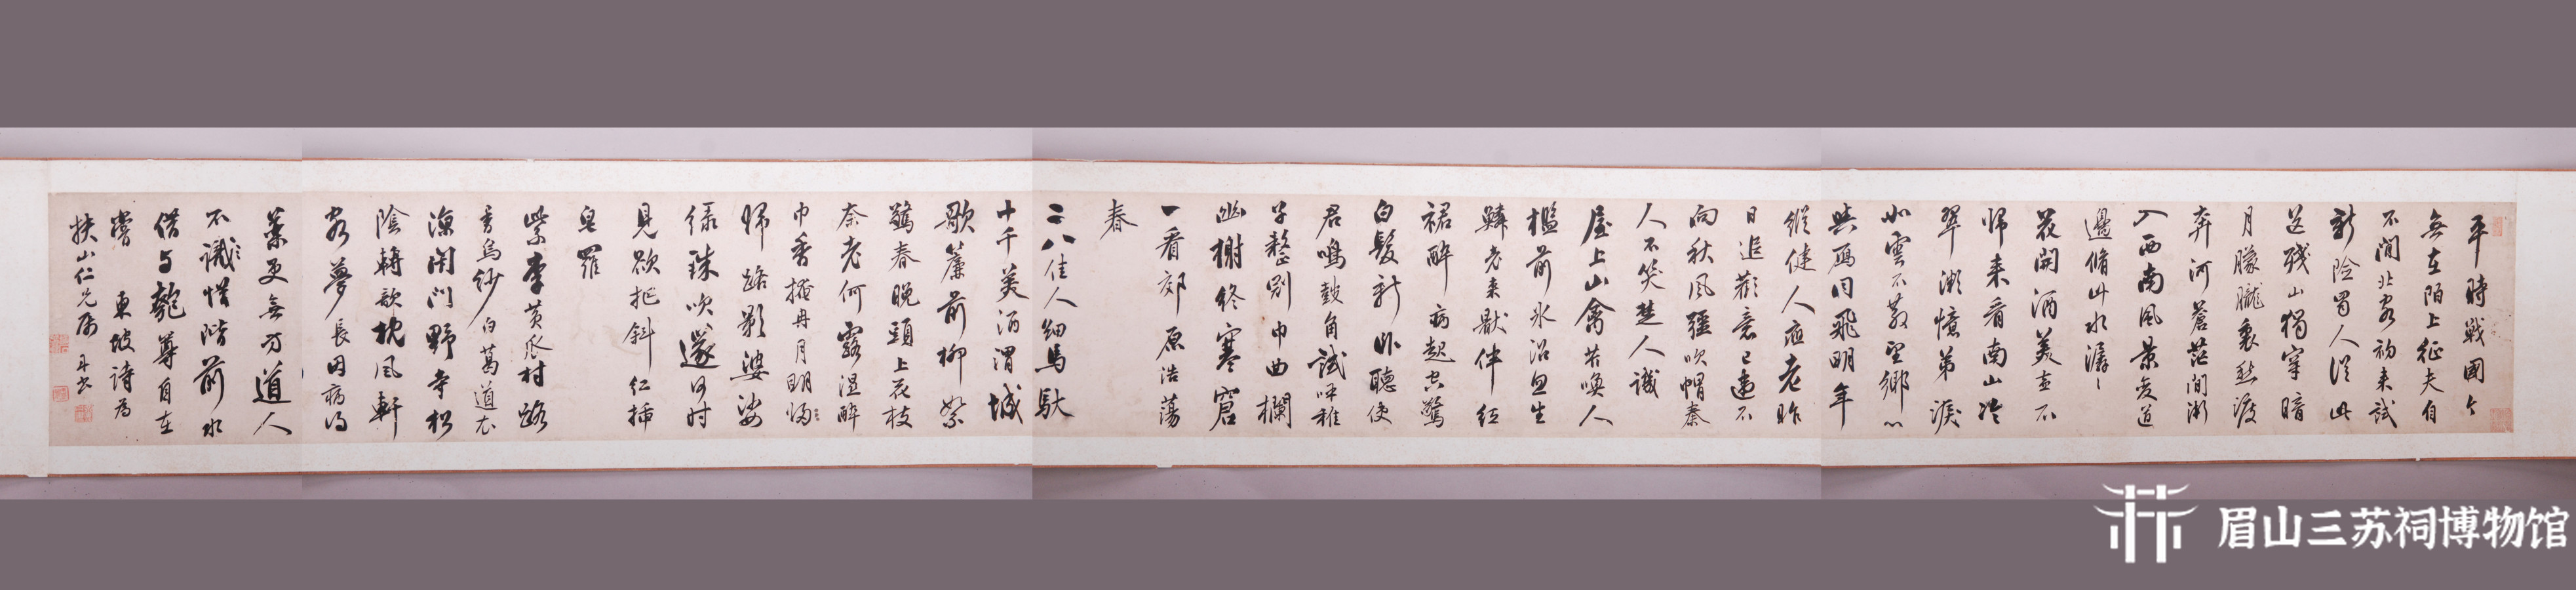 平時戰國今
無在陌上征夫自
不閒北客初来試
新險蜀人從此
送殘山獨穿暗
月朦朧裏愁渡
奔河蒼茫間漸
入西南風景变道
邊脩竹水潺〻
花開酒美盍不
歸来看南山冷
翠微憶弟淚
如雲不散望鄉心
與雁同飛明年
縱健人應老昨
日追歡意已違不
向秋風強吹帽秦
人不笑楚人譏
屋上山禽苦喚人
檻前氷沼忽生
鱗老来厭伴红
裙醉病起空驚
白髮新卧聽使
君鳴鼓角試呼稚
子整冠巾曲欄
幽榭終寒窘
一看郊原浩蕩
春
二八佳人細馬馱
十千美酒渭城
歌簾前柳絮
驚春晚頭上花枝
奈老何露湿醉
巾香掩冉月明
歸路影婆娑
綠珠吹邃何时
見欲把斜红插
皂羅
紫李黄瓜村路
香烏紗白葛道衣
涼閉門野寺松
陰轉欹枕風軒
客夢長因病得
藥更無方道人
不識惜階前水
借与匏尊自在
嘗 東坡詩為
扶山仁兄屬 丹书
眉山三苏祠博物馆